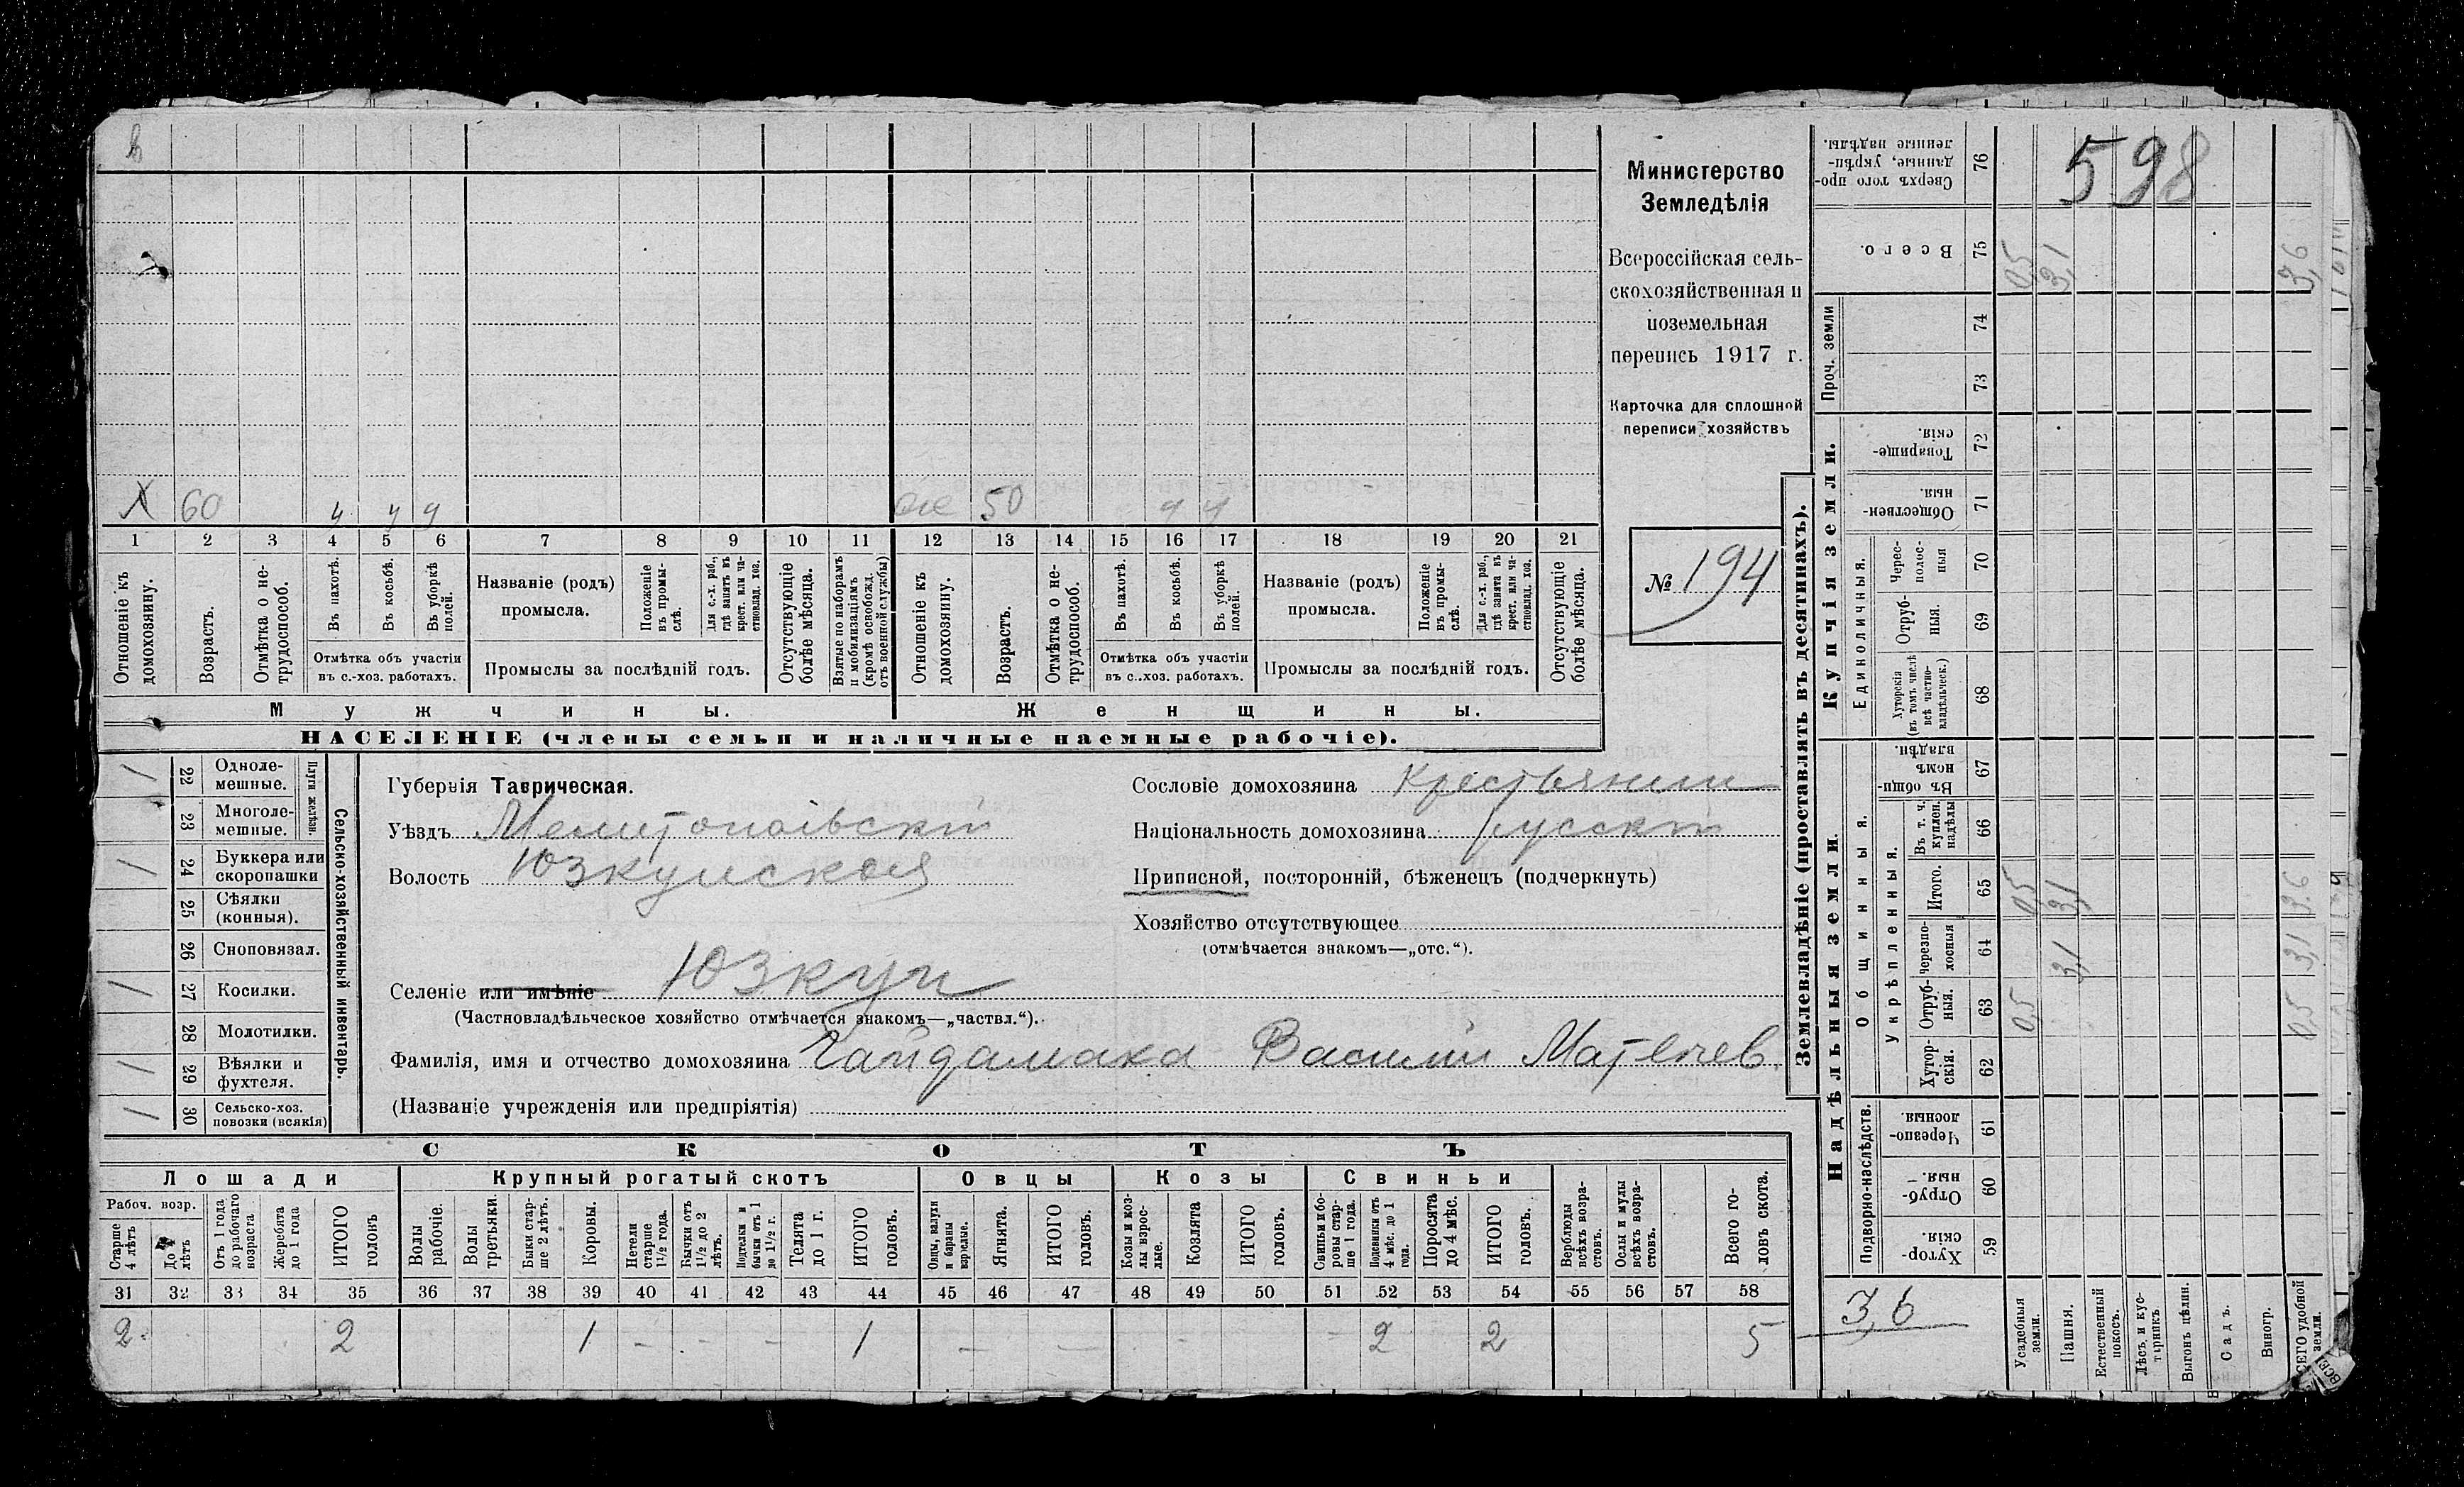 598
Министерство
Земледѣлія
Всероссійская сель-
скохозяйственная и
поземельная
перепись 1917 г.
Карточка для сплошной
переписи хозяйствъ
№ 194
X 60 у у у ж 50 у у
1 2 3 4 5 6 7 8 9 10 11 12 13 14 15 16 17 18 19 20 21
Отношеніе къ домохозяину.
Возрастъ.
Отмѣтка о не-трудоспособ.
Въ пахотѣ.
Въ косьбѣ.
Въ уборкѣ полей.
Отмѣтка объ участіи
въ с.-хоз. работахъ.
Названіе (родъ)
промысла.
Положеніе въ промы-слѣ.
Для с.-х. раб., гдѣ занятъ въ крест. или ча-стновлад. хоз.
Промыслы за послѣдній годъ.
Отсутствующіе болѣе мѣсяца.
Взятые по наборамъ и мобилизаціямъ (кромѣ освобожд. отъ военной службы)
Отношеніе къ домохозяину.
Возрастъ.
Отмѣтка о не-трудоспособ.
Въ пахотѣ.
Въ косьбѣ.
Въ уборкѣ полей.
Отмѣтка объ участіи
въ с..хоз. работахъ.
Названіе (родъ)
промысла.
Положеніе въ промы-слѣ.
Для с.-х. раб., гдѣ занята въ крест. или ча-стновлад. хоз.
Промыслы за послѣдній годъ.
Отсутствующіе болѣе мѣсяца.
Мужчины. Женщины.
НАСЕЛЕНІЕ (члены семьи и наличные наемные рабочіе).
Сельско-хозяйственный инвентарь.
Плуги желѣзн.
/ 22 Одноле-мешные.
23 Многоле-мешные.
/ 24 Буккера или скоропашки
25 Сѣялки (конныя).
26 Сноповязал.
/ 27 Косилки.
28 Молотилки.
/ 29 Вѣялки и фухтеля.
/ 30 Сельско-хоз. повозки (всякія)
Губернія Таврическая.
Уѣздъ Мелитопольскій
Волость Юзкуйская
Селеніе или имѣніе Юзкуи
(Частновладѣльческое хозяйство отмѣчается знакомъ—„частвл.“).
Фамилія, имя и отчество домохозяина Гайдамака Василій Матвеев.
(Названіе учрежденія или предпріятія)
Сословіе домохозяина крестьянин
Національность домохозяина русскій
Приписной, посторонній, бѣженецъ (подчеркнуть)
Хозяйство отсутствующее
(отмѣчается знакомъ—„отс.“).
СКОТЪ
Лошади Крупный рогатый скотъ Овцы Козы Свиньи
Рабоч. возр.
Старше 4 лѣтъ
До 4 лѣтъ
Отъ 1 года до рабочаго возраста
Жеребята до 1 года
ИТОГО головъ
Волы рабочіе.
Волы третьяки.
Быки стар-ше 2 лѣтъ.
Коровы.
Нетели старше 1½ года.
Бычки отъ 1½ до 2 лѣтъ.
Подтелки и бычки отъ 1 до 1½ г.
Телята до 1 г.
ИТОГО головъ.
Овцы, валухи и бараны взрослые.
Ягнята.
ИТОГО головъ.
Козы и коз-лы взрос-лые.
Козлята
ИТОГО головъ.
Свиньи и бо-ровы стар-ше 1 года.
Подсвинки отъ 4 мѣс. до 1 года.
Поросята до 4 мѣс.
ИТОГО головъ.
Верблюды всѣхъ возра-стовъ.
Ослы и мулы всѣхъ возра-стовъ.
Всего го-ловъ скота.
31 32 33 34 35 36 37 38 39 40 41 42 43 44 45 46 47 48 49 50 51 52 53 54 55 56 57 58
2 2 1 - - - 1 - - - - 2 2 5
Землевладѣніе (проставлять въ десятинахъ).
Надѣльныя земли. Купчія земли. Проч. земли
Подворно-наслѣдств.
Общинныя.
Укрѣпленныя.
Единоличныя.
Хутор-скія. 59
Отруб-ныя. 60
Черезпо-лосныя 61
Хутор-скія. 62
Отруб-ныя. 63 0,5 0,5
Черезпо-лосныя 64 3,1 3,1
Итого. 65 0,5 3,1 3,6
Въ т. ч. куплен. надѣлы 66
Въ общин-номъ владѣн. 67
Хуторскія (въ томъ числѣ всѣ частно-владѣльческ.) 68
Отруб-ныя. 69
Черес-полос-ныя 70
Обществен-ныя. 71
Товарище-скія. 72
73
74
Всего. 75 0,5 3,1 3,6
Сверхъ того про-данные, укрѣп-ленные надѣлы. 76
3,6
Усадебныя земли.
Пашня.
Естественный покосъ.
Лѣсъ и кус-тарникъ
Выгонъ цѣлин.
Садъ.
Виногр.
ВСЕГО удобной земли.